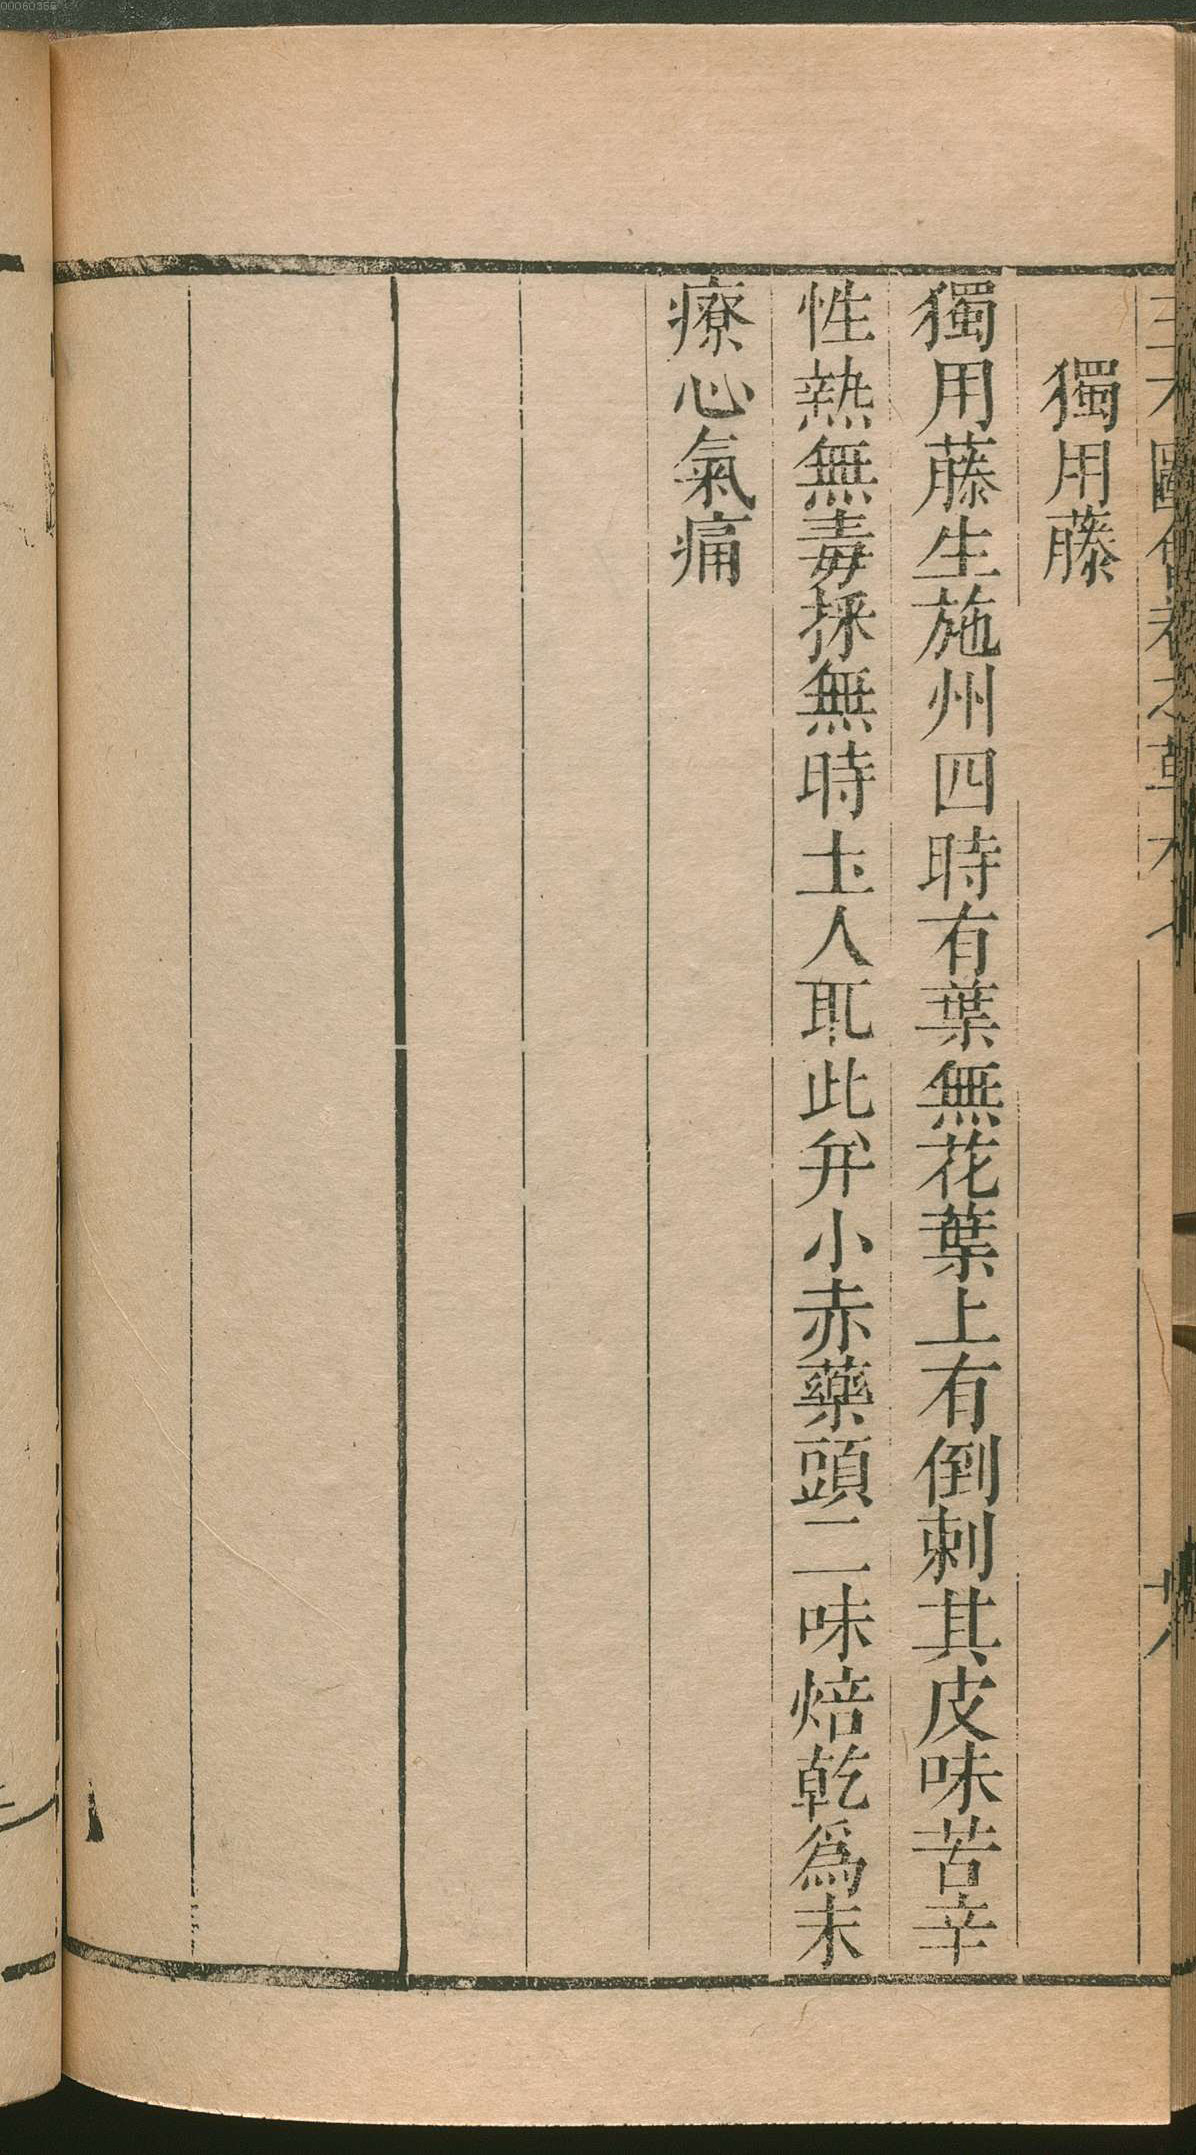 00060355
獨用藤
獨用藤生施州四時有葉無花葉上有倒刺其皮味苦辛
性熱無毒採無時𡈽人取此并小赤藥頭二味焙乾爲末
療心氣痛